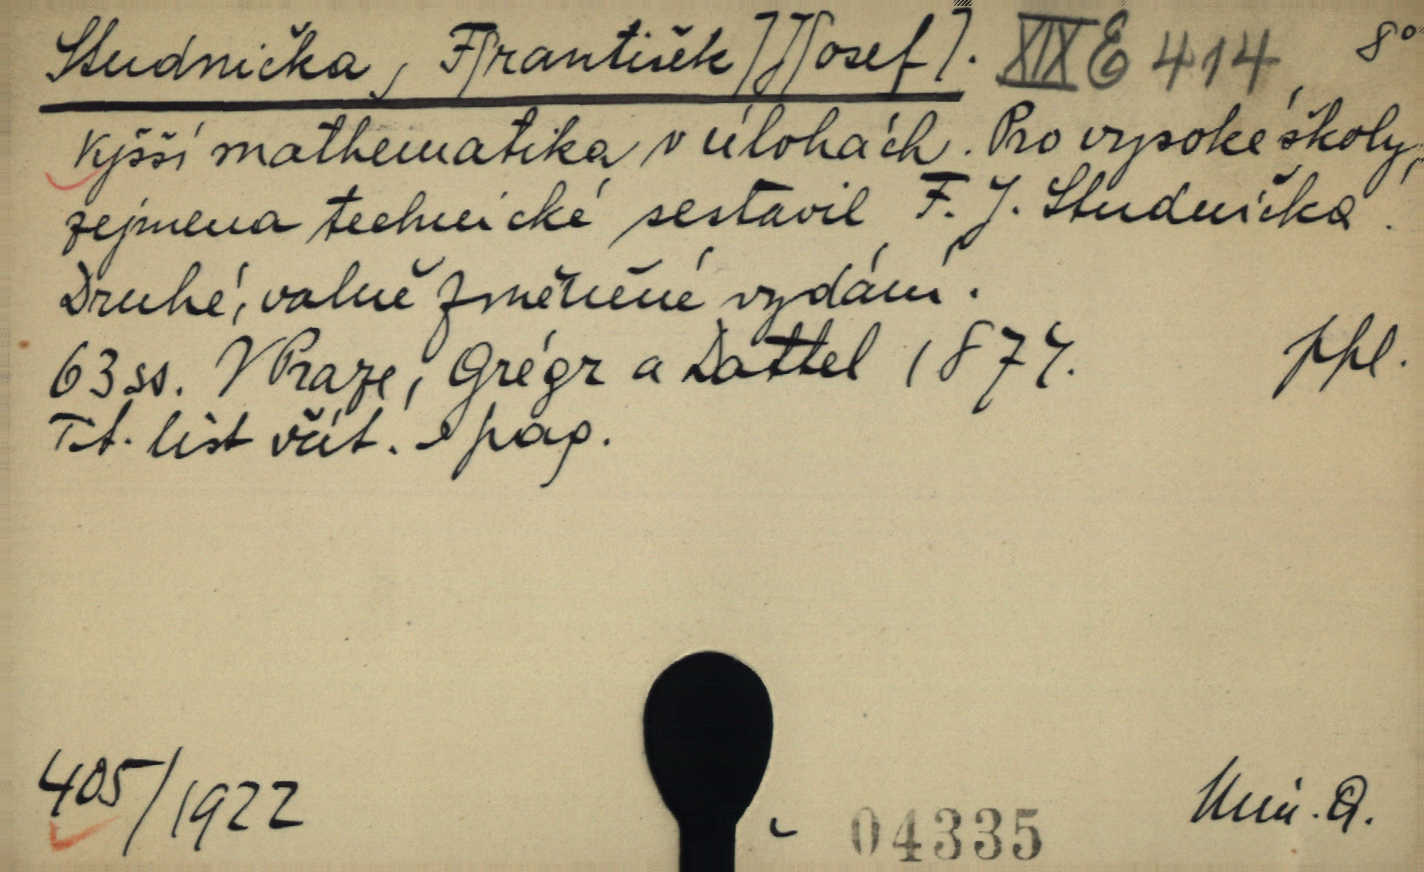 Studnička, F[rantišek] J[osef]. XIX E 414 8°
Vyšší mathematika v úlohách. Pro vysoké školy,
zejmena technické sestavil F. J. Studnička.
Druhé, valně změněné vydání.
63 ss. V Praze, Grégr a Dattel 1874. ppl.
Tit. list včít. v pag.
405/1922
04335